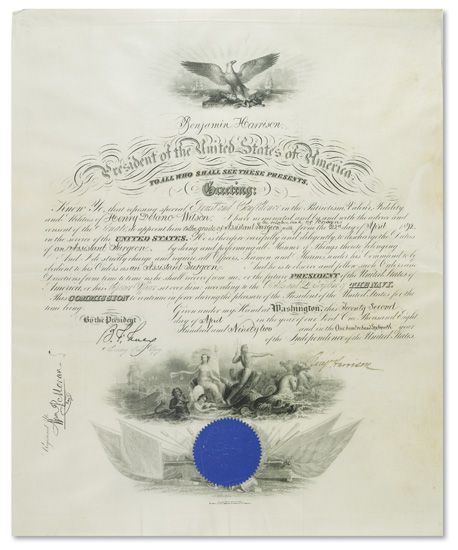 Benjamin Harrison,
President of the United States of America,
TO ALL WHO SHALL SEE THESE PRESENTS,
Greeting:
Know Ye, that reposing special Trust and Confidence in the Patriotism, Valor, Fidelity
and Abilities of Henry Wilson, I have nominated and by and with the advice and
consent of the Senate, do appoint him Assistant Surgeon from the 22d day of April 1892
in the service of the UNITED STATES. He is therefore carefully and diligently to discharge the duties of
an Assistant Surgeon, by doing and performing all Manner of Things thereto belonging.
And I do strictly charge and require all Officers, Seamen and Marines under his Command to be
obedient to his Orders as an Assistant Surgeon. And he is to observe and follow such Orders and
Directions from time to time as he shall receive from me, or the future PRESIDENT of the United States of
America, or his Superior Officer set over him, according to the Rules and Discipline of THE NAVY.
This COMMISSION to continue in force during the pleasure of the President of the United States for the
time being.
Given under my Hand at Washington, this Twenty Second
day of April in the year of our Lord One Thousand Eight
Hundred and Ninety two and in the One hundred and Sixteenth year
of the Independence of the United States.
By the President
B. F. Tracy
Secretary of the Navy
Benj Harrison
Registered
McMoran